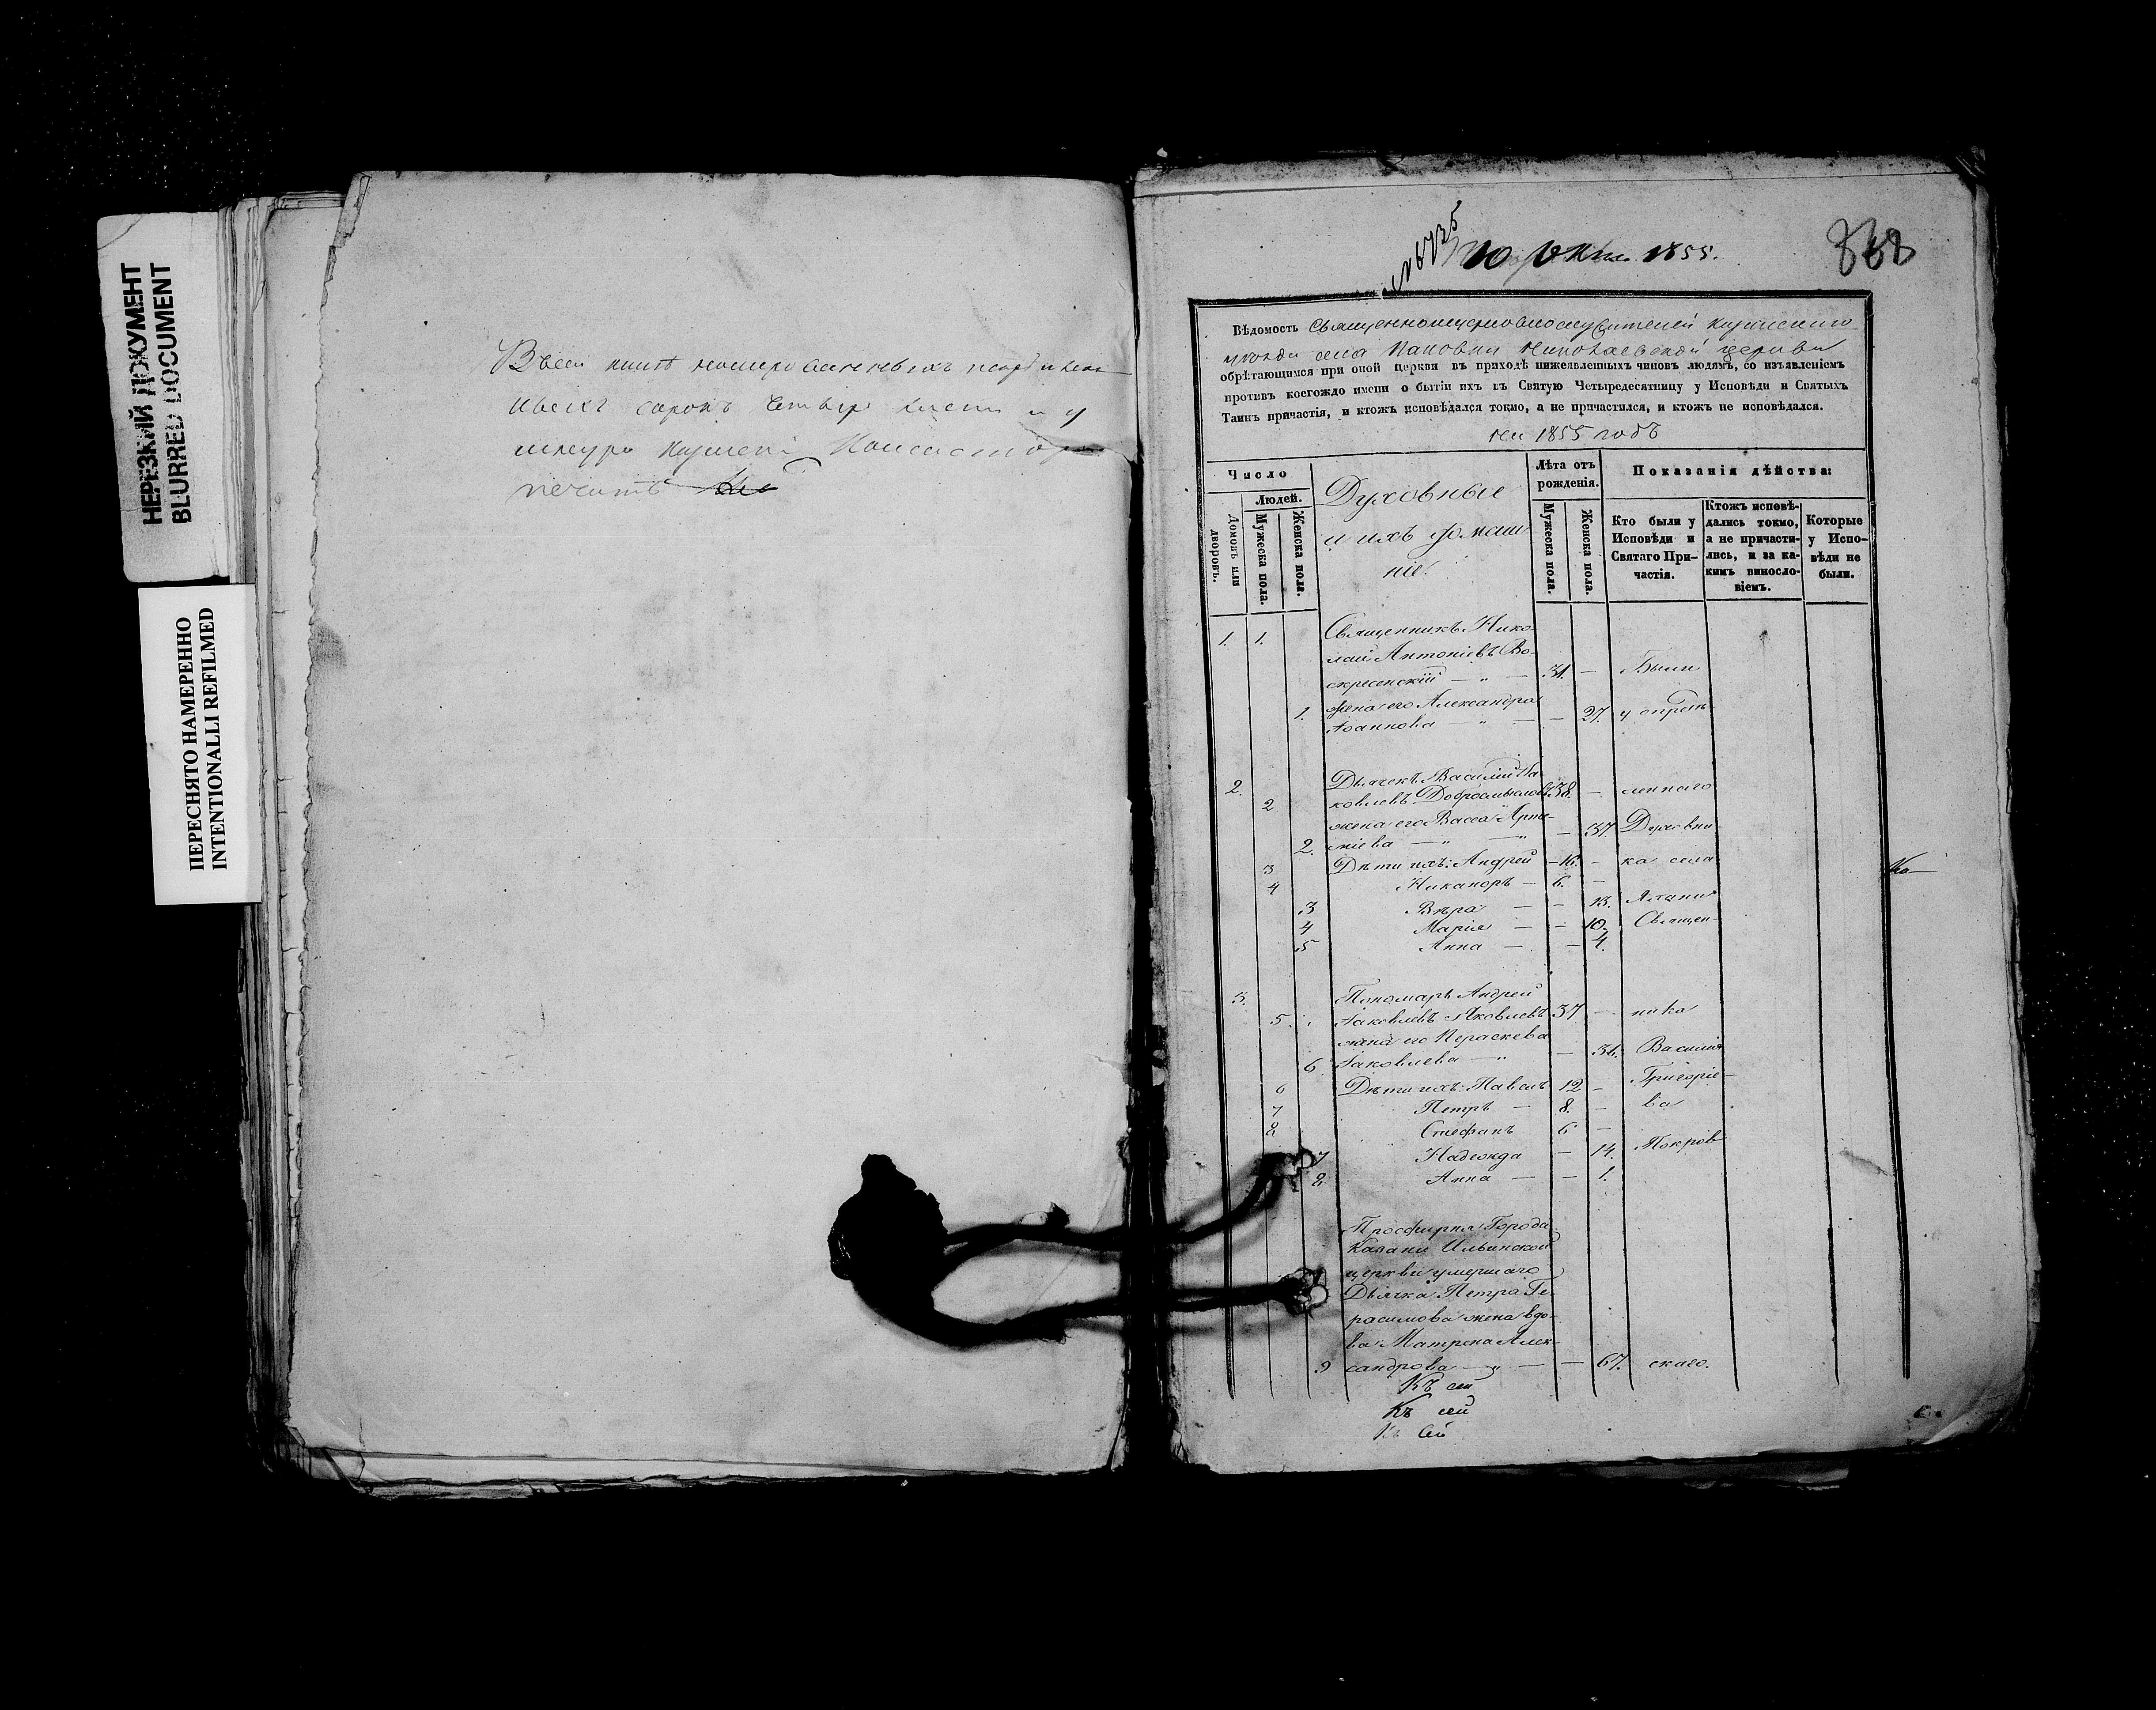 НЕРЕЗКИЙ ДОКУМЕНТ
BLURRED DOCUMENT
ПЕРЕСНЯТО НАМЕРЕННО
INTENTIONALLI REFILMED
сорокъ
печать
№ 6735
10 1855.
868
Вѣдомость Священноцерковнослужителей
села Николаевской церкви
обрѣтающимся при оной церкви въ приходѣ нижеявленныхъ чиновъ людямъ, со изъявленіемъ
противъ коегождо имени о бытіи ихъ въ Святую Четыредесятницу у Исповѣди и Святыхъ
Таинъ причастія, и ктожъ исповѣдался токмо, а не причастился, и ктожъ не исповѣдался.
на 1855 годъ
Число
Людей.
Домовъ или дворовъ.
Мужеска пола.
Женска пола.
Духовные
и ихъ домаш-
ніе.
Лѣта отъ
рожденія.
Мужеска пола.
Женска пола.
Показанія дѣйства:
Кто были у
Исповѣди и
Святаго При-
частія.
Ктожъ исповѣ-
дались токмо,
а не причасти-
лись, и за ка-
кимъ винословіемъ.
Которые
у Испо-
вѣди не
были.
1. 1. Священникъ Нико-
лай Антоніевъ Во-
скресенскій — „ — 31. — Были
1. жена его Александра
Іоаннова — „ — — 27. у опредѣ-
2. Дьячекъ Василій Іа-
2 ковлевъ Добросмысловъ 38. — леннаго
жена его Васса
2. — 37. Духовни-
3 Дѣти ихъ: Андрей — 16. — ка села
4 Никаноръ — 6. —
3 Вѣра — — 13.
4 Марія — — 10. Священ-
5 Анна — — 4.
3. Пономарь Андрей
5. Іаковлевъ Яковлевъ 37 — ника
жена его Параскева
6 Іаковлева — „ — 36. Василія
6 Дѣти ихъ: Павелъ 12 — Григорье-
7 Петръ — 8. — ва
8 Стефанъ 6 —
7 Надежда — 14. Покров-
8 Анна — — 1.
Просфирня Города
Казани Ильинской
церкви умершаго
Дьячка Петра Ге-
расимова жена вдо-
ва Матрена Алек-
9 сандрова — „ — — 67. скаго.
Къ сей
Къ сей
Къ сей